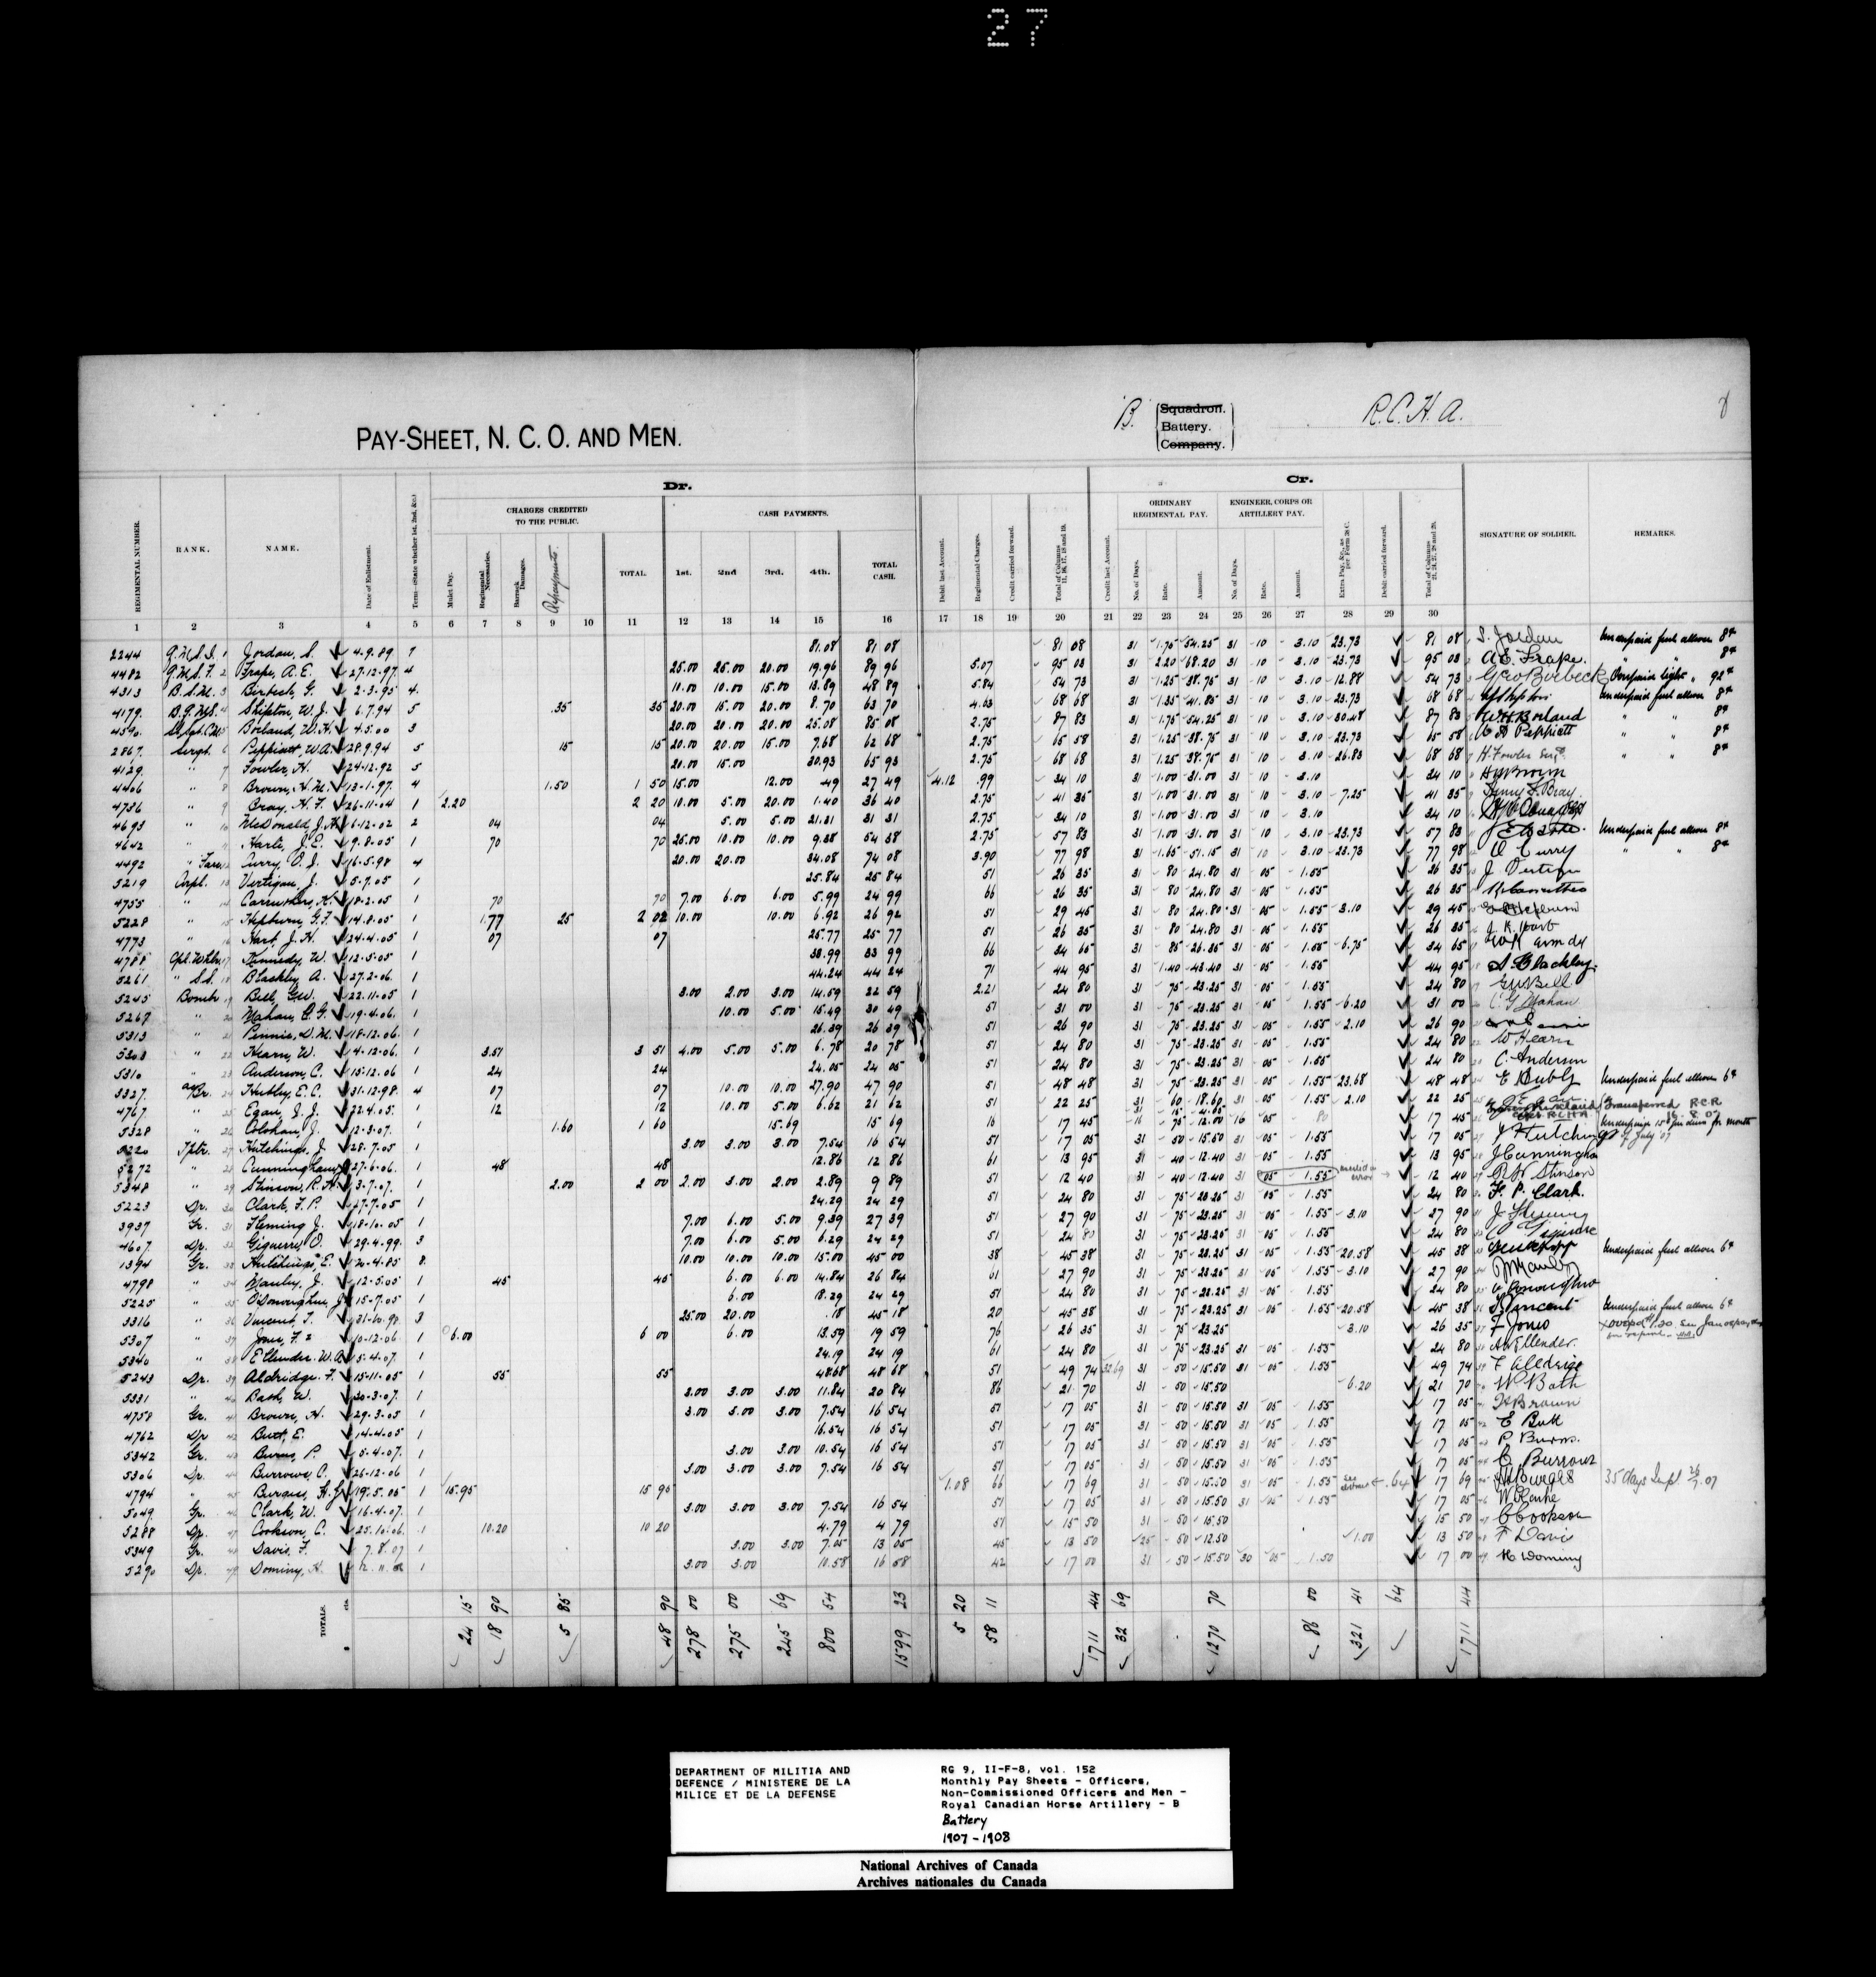 27
PAY-SHEET, N. C. O. AND MEN.
"B." Squadron. Battery. Company. R.C.H.A. 8
Dr. Cr.
CHARGES CREDITED TO THE PUBLIC. CASH PAYMENTS. ORDINARY REGIMENTAL PAY. ENGINEER, CORPS OR ARTILLERY PAY.
REGIMENTAL NUMBER. RANK. NAME. Date of Enlistment. Term—(State whether 1st, 2nd, &c.) Mulct Pay. Regimental Necessaries. Barrack Damages. Repayments. TOTAL. 1st. 2nd 3rd. 4th. TOTAL CASH. Debit last Account. Regimental Charges. Credit carried forward. Total of Columns 11, 16, 17, 18 and 19. Credit last Account. No. of Days. Rate. Amount. No. of Days. Rate. Amount. Extra Pay, &c., as per Form 28 C. Debit carried forward. Total of Columns 21, 24, 27, 28 and 29. SIGNATURE OF SOLDIER. REMARKS.
1 2 3 4 5 6 7 8 9 10 11 12 13 14 15 16 17 18 19 20 21 22 23 24 25 26 27 28 29 30
2244 Q.M.S.I. 1 Jordan, S. 4.9.89 7 81.08 81 08 81 08 31 1.75 54.25 31 10 3.10 23.73 81 08 S. Jordan Underpaid fuel allowce 8¢
4482 Q.M.S.F. 2 Frape, A.E. 27-12-97 4 25.00 25.00 20.00 19.96 89 96 5.07 95 03 31 2.20 68.20 31 10 3.10 23.73 95 03 A.E. Frape. " " 8¢
4313 B.S.M. 3 Birbeck, G. 2-3-95 4 10.00 10.00 15.00 13.89 48 89 5.84 54 73 31 1.25 38.75 31 10 3.10 12.88 54 73 Geo Birbeck Overpaid light " 92¢
4179 B.Q.M.S. 4 Shipton, W.J. 6.7.94 5 .35 35 20.00 15.00 20.00 8.70 63 70 4.63 68 68 31 1.35 41.85 31 10 3.10 23.73 68 68 Underpaid fuel allowce 8¢
4590 5 Borland, W.H. 4.5.00 3 20.00 20.00 20.00 25.08 85 08 2.75 87 83 31 1.75 54.25 31 10 3.10 30.48 87 83 W.H. Borland " " 8¢
2867 Sergt. 6 Peppiatt, W.A. 28.9.94 5 15 15 20.00 20.00 15.00 7.68 62 68 2.75 65 58 31 1.25 38.75 31 10 3.10 23.73 65 58 Peppiatt " " 8¢
4129 " 7 Fowler, H. 24-12-92 5 20.00 15.00 30.93 65 93 2.75 68 68 31 1.25 38.75 31 10 3.10 26.83 68 68 H. Fowler
4406 " 8 Brown, H.M. 13-1-97 4 1.50 1 50 15.00 12.00 .49 27 49 4.12 .99 34 10 31 1.00 31.00 31 10 3.10 34 10 H M Brown
4736 " 9 Bray, H.F. 26-11-04 1 2.20 2 20 10.00 5.00 20.00 1.40 36 40 2.75 41 35 31 1.00 31.00 31 10 3.10 7.25 41 35 Henry F. Bray.
4693 " 10 McDonald, J.A. 6-12-02 2 04 04 5.00 5.00 21.31 31 31 2.75 34 10 31 1.00 31.00 31 10 3.10 34 10
4642 " 11 Harle, J.E. 9.8.05 1 70 70 25.00 10.00 10.00 9.38 54 38 2.75 57 83 31 1.00 31.00 31 10 3.10 23.73 57 83 Underpaid fuel allowce 8¢
4492 " Farr. 12 Curry, O.J. 16-5-98 4 20.00 20.00 34.08 74 08 3.90 77 98 31 1.65 51.15 31 10 3.10 23.73 77 98 O Curry " " 8¢
5219 Corpl. 13 Vertigan, J. 5-7-05 1 25.84 25 84 51 26 35 31 80 24.80 31 05 1.55 26 35 J. Vertigan
4755 " 14 Carruthers, K. 18-2-05 1 70 70 7.00 6.00 6.00 5.99 24 99 66 26 35 31 80 24.80 31 05 1.55 26 35
5228 " 15 Hepburn, G.F. 14.8.05 1 1.77 25 2 02 10.00 10.00 6.92 26 92 51 29 45 31 80 24.80 31 05 1.55 3.10 29 45 G F Hepburn
4773 " 16 Hart, J.H. 24-4-05 1 07 07 25.77 25 77 51 26 35 31 80 24.80 31 05 1.55 26 35 J. H. Hart
4788 Cpl. Whlr. 17 Kennedy, W. 12-5-05 1 33.99 33 99 66 34 65 31 85 26.35 31 05 1.55 6.75 34 65
5261 " S.S. 18 Blackley, A. 27-2-06 1 44.24 44 24 71 44 95 31 1.40 43.40 31 05 1.55 44 95 A. Blackley.
5245 Bombr 19 Bell, G.W. 22.11-05 1 3.00 2.00 3.00 14.59 22 59 2.21 24 80 31 75 23.25 31 05 1.55 24 80 G W Bell
5267 " 20 Mahan, C.G. 19-4-06 1 10.00 5.00 15.49 30 49 51 31 00 31 75 23.25 31 05 1.55 6.20 31 00 C G Mahan
5313 " 21 Pennie, D.M. 18-12-06 1 26.39 26 39 51 26 90 31 75 23.25 31 05 1.55 2.10 26 90
5303 " 22 Hearn, W. 4-12-06 1 3.51 3 51 4.00 5.00 5.00 6.78 20 78 51 24 80 31 75 23.25 31 05 1.55 24 80 W Hearn
5310 " 23 Anderson, C. 15-12-06 1 24 24 24.05 24 05 51 24 80 31 75 23.25 31 05 1.55 24 80 C. Anderson
5327 a/Br. 24 Hubley, E.C. 31-12-98 4 07 07 10.00 10.00 27.90 47 90 51 48 48 31 75 23.25 31 05 1.55 23.68 48 48 E Hubly Underpaid fuel allowce 6¢
4767 " 25 Egan, J.J. 22.4.05 1 12 12 10.00 5.00 6.62 21 62 51 22 25 31 60 18.60 31 05 1.55 2.10 22 25 J J Egan
5328 " 26 Colohan, J. 12-3-07 1 1.60 1 60 15.69 15 69 16 17 45 16 75 12.00 16 05 80 17 45 Transferred R.C.R. 16.8.07
5220 Tptr. 27 Hutchings, J. 28-7-05 1 3.00 3.00 3.00 7.54 16 54 51 17 05 31 50 15.50 31 05 1.55 17 05 J Hutchings Underpaid 15¢ per diem for month of July '07
5272 " 28 Cunningham, J. 27-6-06 1 48 48 12.86 12 86 61 13 95 31 40 12.40 31 05 1.55 13 95 J Cunningham
5348 " 29 Stinson, R.H. 3-7-07 1 2.00 2 00 2.00 3.00 2.00 2.89 9 89 51 12 40 31 40 12.40 31 05 1.55 12 40 R. H. Stinson
5223 Dr. 30 Clark, F.P. 17-7-05 1 24.29 24 29 51 24 80 31 75 23.25 31 05 1.55 24 80 F. P. Clark.
3937 Gr. 31 Fleming J. 18-10-05 1 7.00 6.00 5.00 9.39 27 39 51 27 90 31 75 23.25 31 05 1.55 3.10 27 90 J Fleming
4607 Dr. 32 Giguerre, O. 29-4-99 3 7.00 6.00 5.00 6.29 24 29 51 24 80 31 75 23.25 31 05 1.55 24 80
1394 Gr. 33 Hutchings, E. 20-4-85 8 10.00 10.00 10.00 15.00 45 00 38 45 38 31 75 23.25 31 05 1.55 20.58 45 38 Underpaid fuel allowce 6¢
4798 " 34 Manley, J. 12-5-05 1 45 45 6.00 6.00 14.84 26 84 61 27 90 31 75 23.25 31 05 1.55 3.10 27 90 J Manley
5225 " 35 O'Donoughue, J. 15-7-05 1 6.00 18.29 24 29 51 24 80 31 75 23.25 31 05 1.55 24 80
3316 " 36 Vincent, T. 31-10-98 3 25.00 20.00 .18 45 18 20 45 38 31 75 23.25 31 05 1.55 20.58 45 38 Vincent Underpaid fuel allowce 6¢
5307 " 37 Jones, F. 10-12-06 1 6.00 6 00 6.00 13.59 19 59 76 26 35 31 75 23.25 3.10 26 35 F Jones
5340 " 38 Ellender, W.A. 5-4-07 1 24.19 24 19 61 24 80 31 75 23.25 31 05 1.55 24 80 Ellender.
5243 Dr. 39 Aldridge, F. 15-11-05 1 55 55 48.68 48 68 51 49 74 32 69 31 50 15.50 31 05 1.55 49 74 F Aldridge
5331 " 40 Bath, W. 20-3-07 1 3.00 3.00 3.00 11.84 20 84 86 21 70 31 50 15.50 6.20 21 70 W Bath
4758 Gr. 41 Brown, H. 29-3-05 1 3.00 3.00 3.00 7.54 16 54 51 17 05 31 50 15.50 31 05 1.55 17 05 H Brown
4762 Dr 42 Butt, E. 14-4-05 1 16.54 16 54 51 17 05 31 50 15.50 31 05 1.55 17 05 E Butt
5342 Gr. 43 Burns, P. 5-4-07 1 3.00 3.00 10.54 16 54 51 17 05 31 50 15.50 31 05 1.55 17 05 P Burns.
5306 Dr. 44 Burrows, C. 26-12-06 1 3.00 3.00 3.00 7.54 16 54 51 17 05 31 50 15.50 31 05 1.55 17 05 C Burrows
4794 " 45 Burgess, H.J. 19.5.05 1 15.95 15 95 1.08 66 17 69 31 50 15.50 31 05 1.55 .64 17 69 Burgess 35 days Impt 26/7.07
5049 Gr. 46 Clark, W. 16-4-07 1 3.00 3.00 3.00 7.54 16 54 51 17 05 31 50 15.50 31 05 1.55 17 05 W Clarke
5288 Dr. 47 Cookson, C. 25.10.06 1 10.20 10 20 4.79 4 79 51 15 50 31 50 15.50 15 50 C Cookson
5349 Gr. 48 Davis, F. 7.8.07 1 3.00 3.00 7.05 13 05 45 13 50 25 50 12.50 1.00 13 50 F Davis
5290 Dr. 49 Dominy, H. 1 3.00 3.00 10.58 16 58 42 17 00 31 50 15.50 30 05 1.50 17 00 H Dominy
TOTALS. $ cts. 24 15 18 90 5 85 48 90 278 00 275 00 245 69 800 54 1599 23 5 20 58 11 1711 44 32 69 1270 70 86 00 321 41 64 1711 44
DEPARTMENT OF MILITIA AND
DEFENCE / MINISTERE DE LA
MILICE ET DE LA DEFENSE
RG 9, II-F-8, vol. 152
Monthly Pay Sheets - Officers,
Non-Commissioned Officers and Men -
Royal Canadian Horse Artillery - B
Battery
1907-1908
National Archives of Canada
Archives nationales du Canada